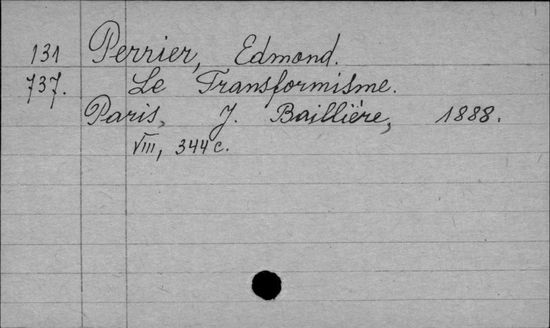 131 Perrier, Edmond.
737. Le Transformisme.
Paris, J. Baillière, 1888.
VIII, 344 c.